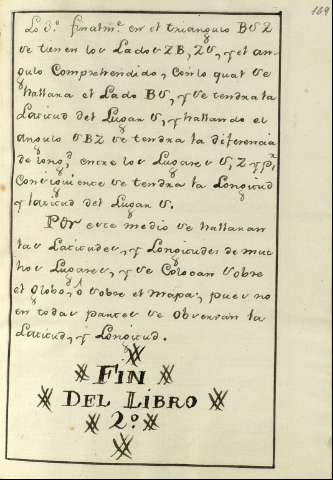 169
Lo 3.º finalm.e en el triangulo BSZ
se tienen los Lados ZB, ZS, y el an-
gulo Comprehendido, Con lo qual se
hallara el Lado BS, y se tendra la
Latitud del Lugar S, y hallando el
angulo SBZ se tendra la diferencia
de long.d entre los Lugares S, Z y p.r
Consiguiente se tendra la Longitud
y latitud del Lugar S.
Por este medio se hallaran
las Latitudes, y Longitudes de mu-
chos Lugares, y se Colocan sobre
el globo, ó sobre el mapa, pues no
en todas partes se observan la
Latitud, y Longitud.
FIN
DEL LIBRO
2.º